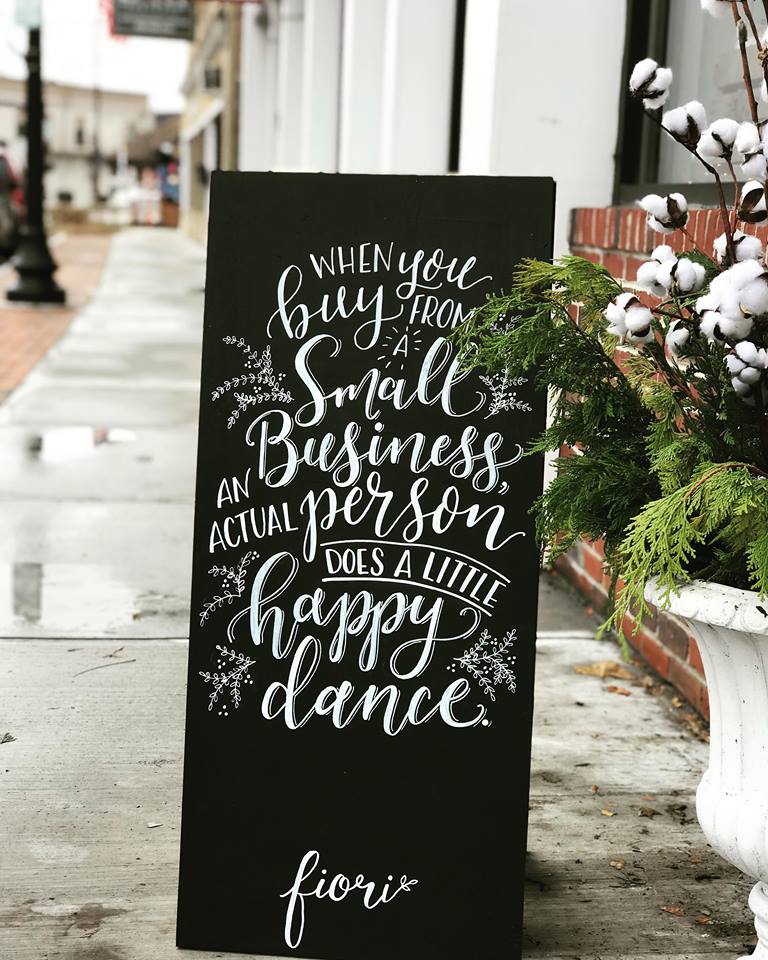 WHEN you
buy FROM
A
Small
Business,
AN
ACTUAL person
DOES A LITTLE
happy
dance.
fiori